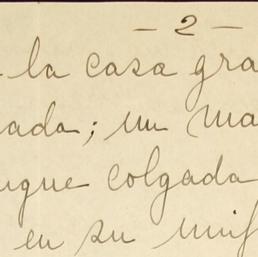 - 2 -
la casa gra
ada; un ma
que colgada
en su unif